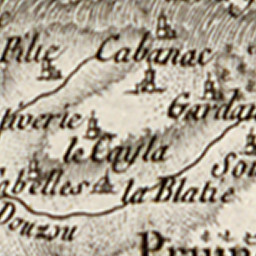 Pilie Cabanac
Gardan
piverie
le Cayla
Sou
abelles la Blatie
Douzou
Pruin